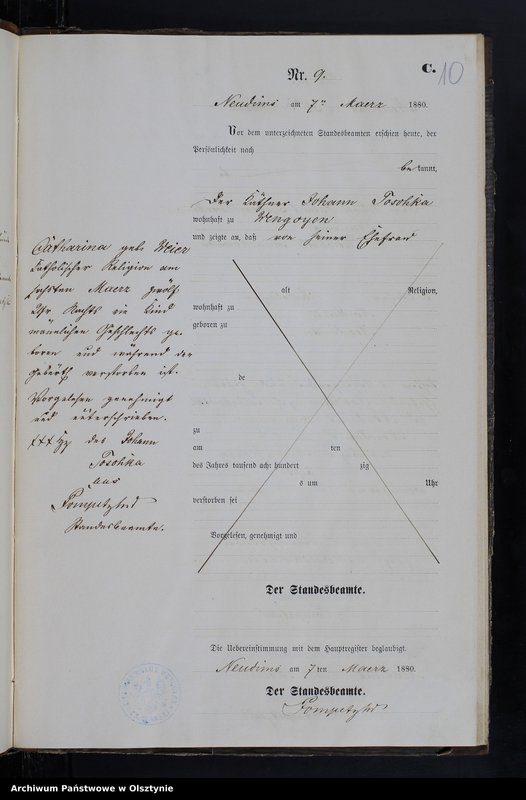 C.
10
Nr. 9.
Neudims am 7ten Maerz 1880.
Vor dem unterzeichneten Standesbeamten erschien heute, der
Persönlichkeit nach
bekannt,
Der Käthner Johann Poschka
wohnhaft zu Wengoyen
und zeigte an, daß von seiner Ehefrau
Catharina geb. Meier
katholischer Religion am
sechsten Maerz zwölf
Uhr Nachts ein Kind
männlichen Geschlechts ge-
boren und während der
Geburt verstorben ist.
Vorgelesen genehmigt
und unterschrieben.
+++ des Johann
Poschka
Standesbeamte.
alt Religion,
wohnhaft zu
geboren zu
de
zu
am ten
des Jahres tausend acht hundert zig
s um Uhr
verstorben sei
Vorgelesen, genehmigt und
Der Standesbeamte.
Die Uebereinstimmung mit dem Hauptregister beglaubigt.
Neudims am 7ten Maerz 1880.
Der Standesbeamte.
Archiwum Państwowe w Olsztynie